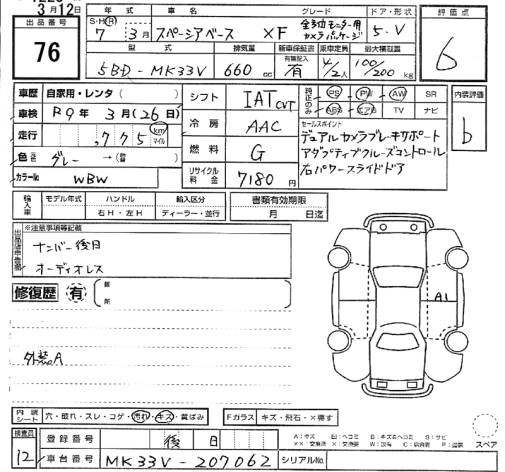 3月12日
出品番号
76
年式 車名 グレード ドア・形状
S・H(R)
7 3月 スペーシアベース XF 全方位モニター用カメラパッケージ 5・V
型式 排気量 新車保証書 乗車定員 最大積載量
有償記入
5BD-MK33V 660cc 有 4/2人 100/200kg
評価点
6
車歴 自家用・レンタ( )
車検 R9年 3月(26日)
走行 ,775 km マイル
色 グレー →(替 )
カラーNo WBW
シフト IAT CVT
冷房 AAC
燃料 G
リサイクル料金 7180円
純正のみ PS PW AW SR
ABS エアB TV ナビ
セールスポイント
デュアルカメラブレーキサポート
アダプティブクルーズコントロール
右パワースライドドア
内装評価
b
輸入車 モデル年式 ハンドル 輸入区分
右H・左H ディーラー・並行
書類有効期限
月 日迄
※注意事項等記載
ナンバー後日
オーディオレス
修復歴 有
箇所
A1
外装A
内装シート 穴・破れ・スレ・コゲ・汚れ・キズ・黄ばみ
Fガラス キズ・飛石・×要す
検査員
12
登録番号 後日
車台番号 MK33V-207062 シリアルNo.
スペア